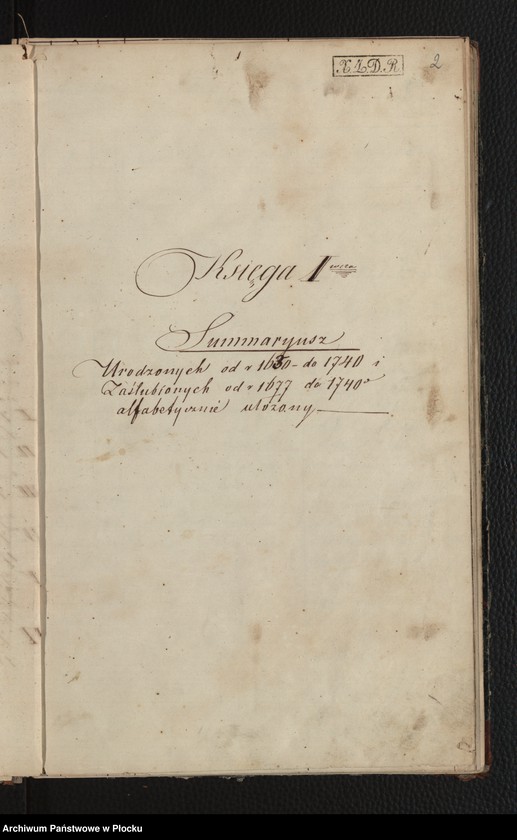 X.Z.D.R.
2
Księga I wsza
Summaryusz
Urodzonych od r 1630 do 1740 i
Zaślubionych od r 1677 do 1740
alfabetycznie ułożony
Archiwum Państwowe w Płocku